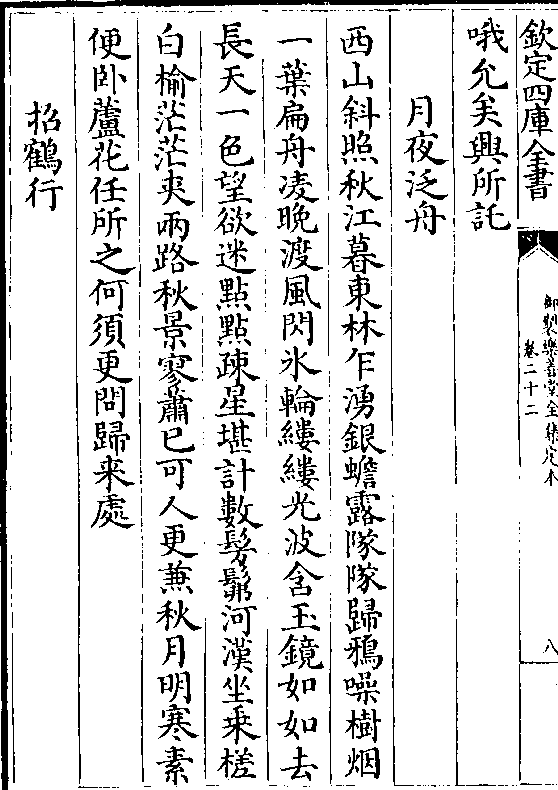 欽定四庫全書
御製樂善堂全集定本
卷二十二
八
哦允矣興所託
月夜泛舟
西山斜照秋江暮東林乍湧銀蟾露隊隊歸鴉噪樹烟
一葉扁舟凌晚渡風閃氷輪縷縷光波含玉鏡如如去
長天一色望欲迷點點疎星堪計數髣髴河漢坐乗槎
白榆茫茫夾兩路秋景寥蕭已可人更蕪秋月明寒素
便卧蘆花任所之何須更問歸来處
招鶴行